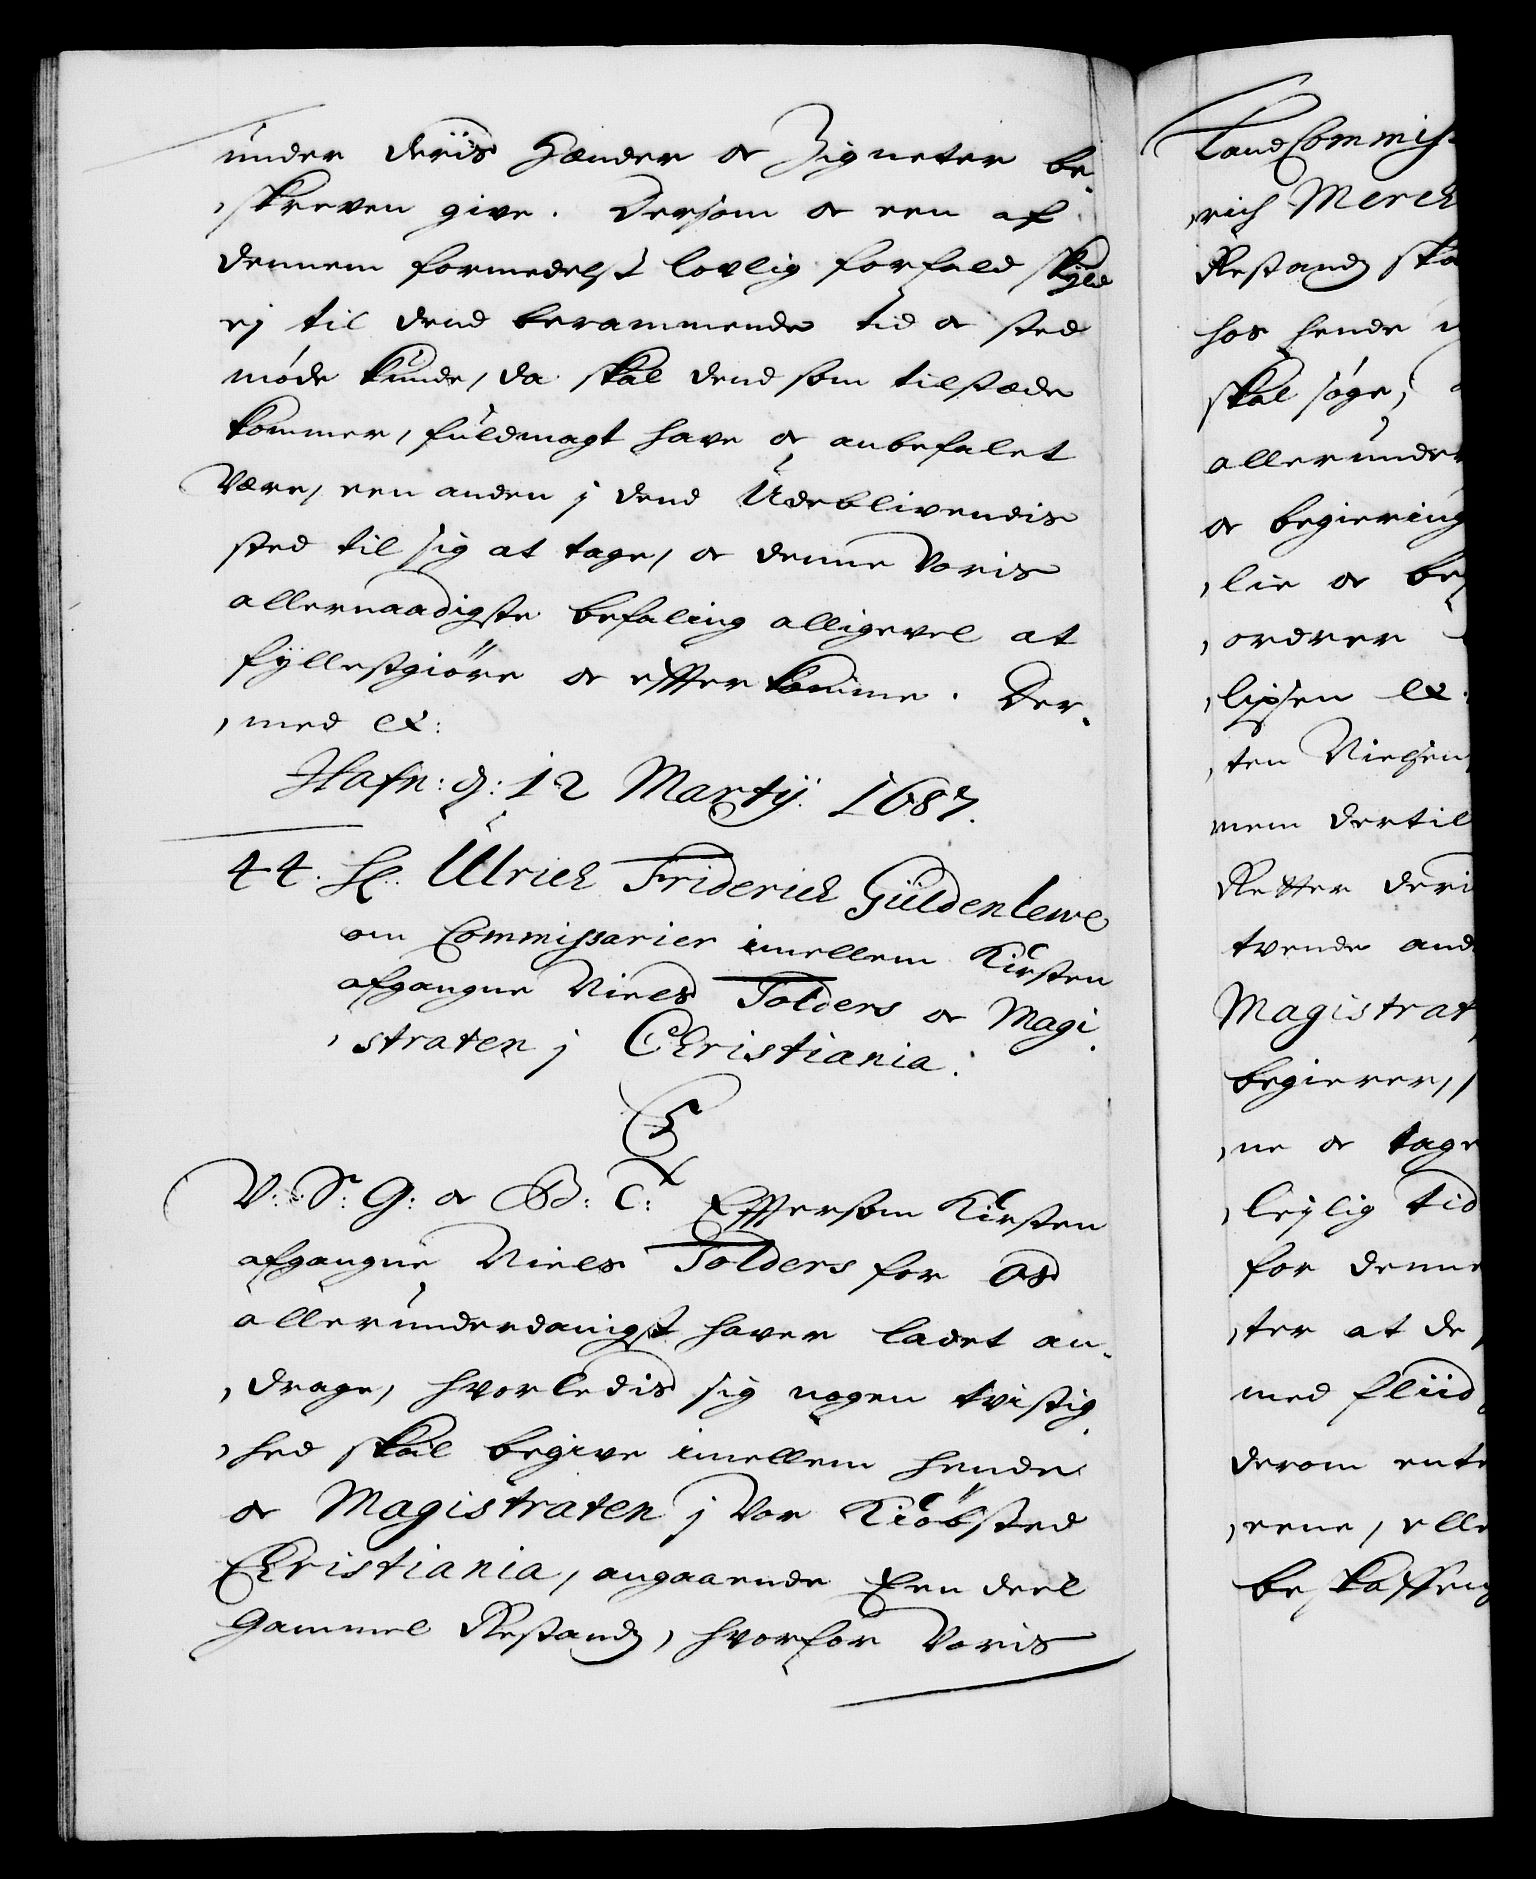 under deris Hænder oc Zigneter be-
skreven give. Dersom oc een af
dennem formedelst lovlig forfald skyld
ej til dend berammende tid oc sted
møde kunde, da skal dend som tilstæde
kommer, fuldmagt have oc anbefalet
være, een anden j dend Udeblivendis
sted til sig at tage, oc denne Voris
allernaadigste befaling alligevel at
fyllestgiöre oc effterkomme. Der-
med etc:
Hafn: d: 12 Martij 1687.
44. H: Ulrich Friderich Güldenlewe
om Commissarier imellem Kirsten
afgangne Niels Tolders oc Magi-
straten j Christiania.
C5
V: S: G: oc B: T: Effersom Kirsten
afgangne Niels Tolders for Os
allerunderdanigst haver ladet an-
drage, hvorledis sig nogen tvistig-
hed skal begive imellem hende
oc Magistraten j Vor Kiöbsted
Christiania, angaaende Een deel
Gammel Restands, hvorfor Voris
LandCommiss
rich Merch
Restands ska
hos hende
skal søge,
allerunder
oc begiering
lie oc be
ordrer
lipsen etc.
ten Nielsen
nem dertil
Retter deri
tvende and
Magistrat
begierer,
ne oc tage
leylig tid
for denne
ter at de
med fliid
derom ente
eene, elle
beskaffen